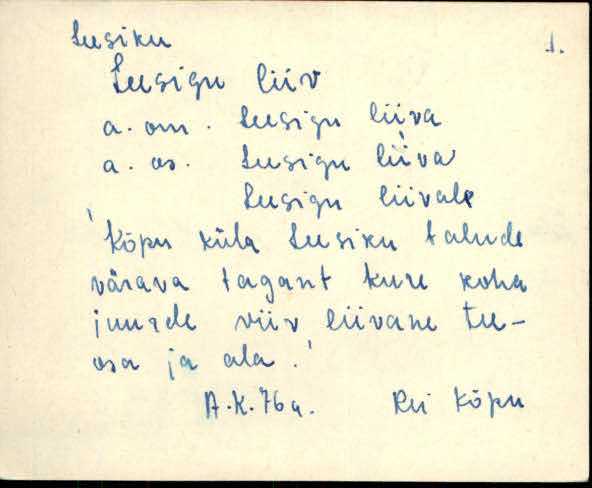 Lusiku 1.
Lusigu liiv
a. om. Lusigu liiva
a. os. Lusigu liiva
Lusigu liivale
'Kõpu küla Lusiku talude
värava tagant kure koha
juurde viiv liivane tee-
osa ja ala.'
A.K. 76a. Rei Kõpu